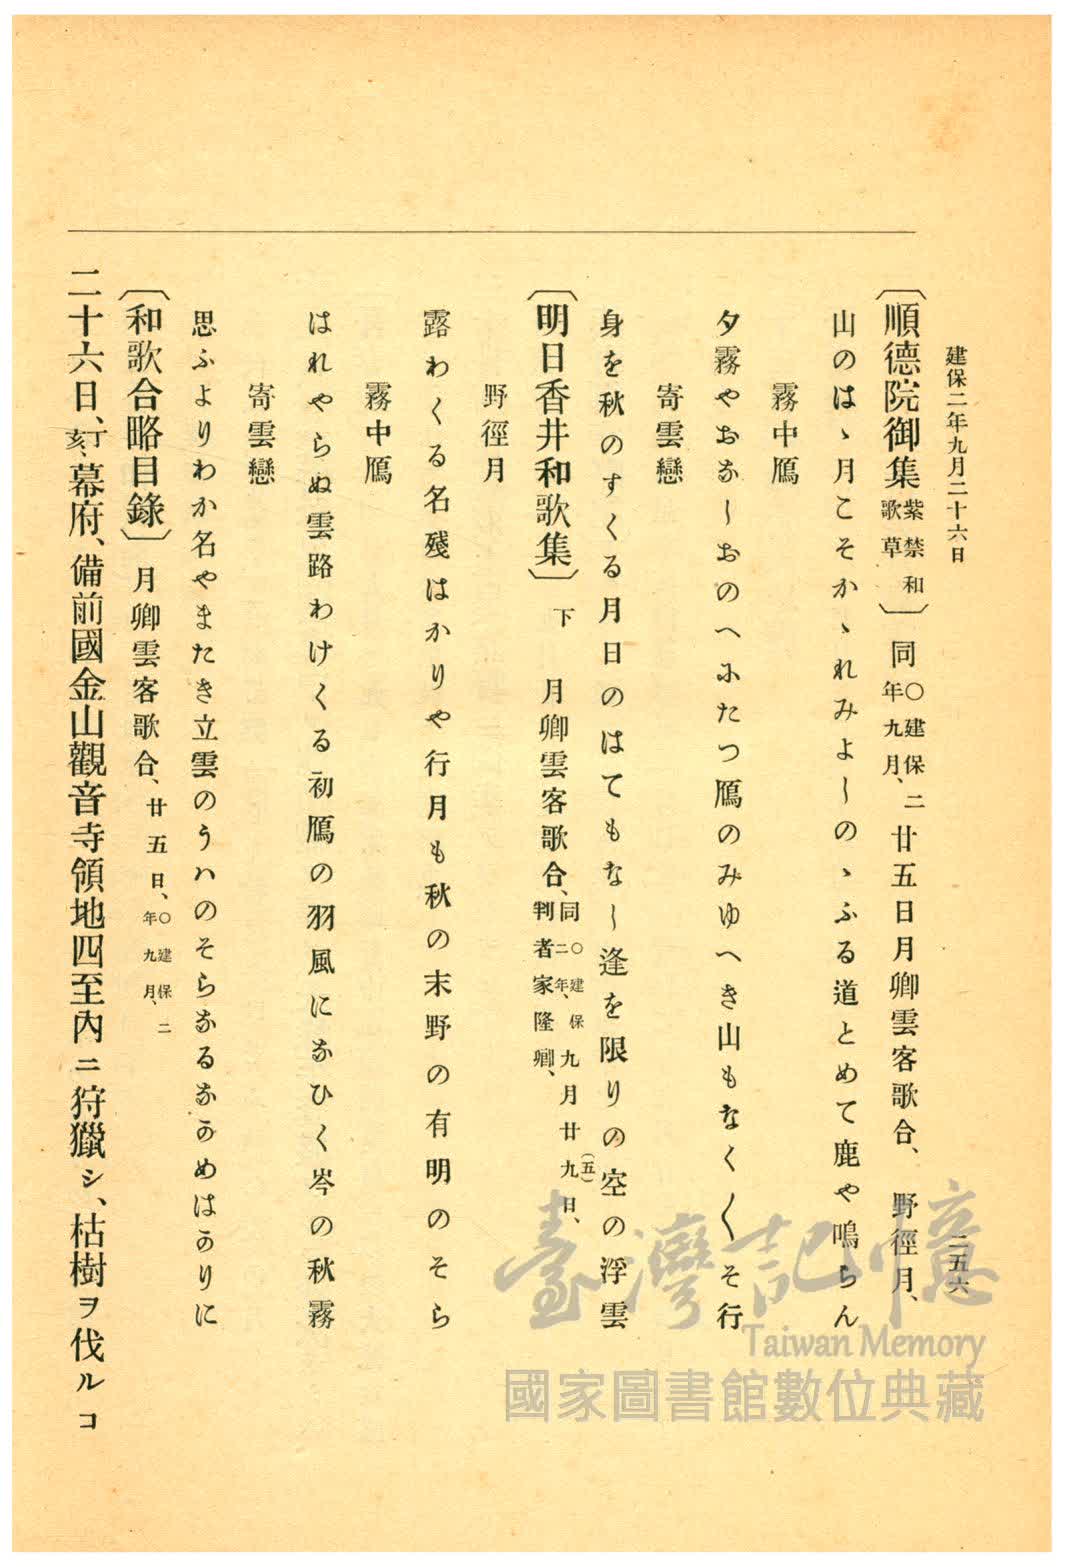 建保二年九月二十六日
二五六
〔順德院御集紫禁和歌草〕同〇建保二年九月、廿五日月卿雲客歌合、野徑月、
山のはゝ月こそかゝれみよしのゝふる道とめて鹿や鳴らん
霧中鴈
夕霧やおなしおのへにたつ鴈のみゆへき山もなく〱そ行
寄雲戀
身を秋のすくる月日のはてもなし逢を限りの空の浮雲
〔明日香井和歌集〕下 月卿雲客歌合、同〇建保二年、九月廿九(五)日、判者家隆卿、
野徑月
露わくる名殘はかりや行月も秋の末野の有明のそら
霧中鴈
はれやらぬ雲路わけくる初鴈の羽風になひく岑の秋霧
寄雲戀
思ふよりわか名やまたき立雲のうハのそらなるなかめはかりに
〔和歌合略目錄〕月卿雲客歌合、廿五日、〇建保二年九月、
二十六日、丁亥、幕府、備前國金山觀音寺領地四至內ニ狩獵シ、枯樹ヲ伐ルコ
臺灣記憶
Taiwan Memory
國家圖書館數位典藏